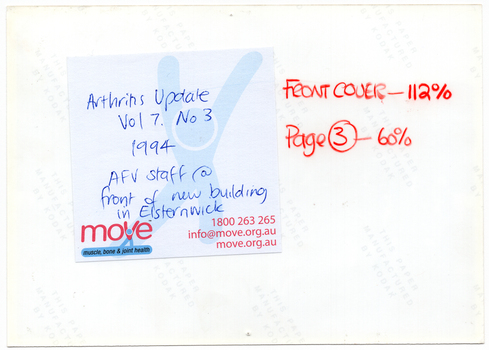 Arthritis Update
Vol 7. No 3
1994
AFV staff @
front of new building
in Elsternwick
move
muscle, bone & joint health
1800 263 265
info@move.org.au
move.org.au
FRONT COVER — 112%
Page 3 — 60%
THIS PAPER
MANUFACTURED
BY KODAK